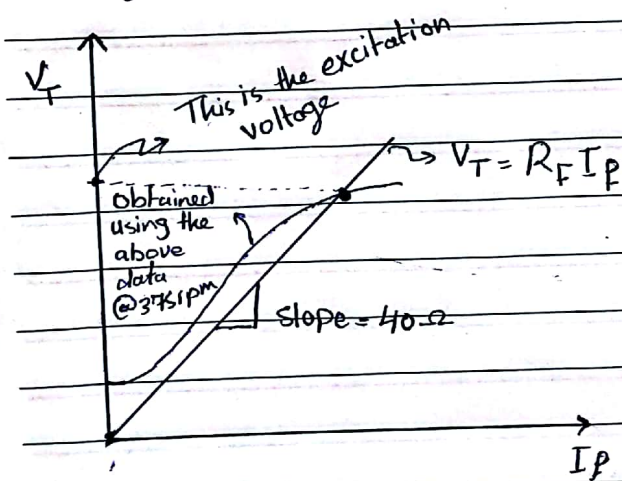 V_T
This is the excitation
voltage
V_T = R_F I_f
obtained
using the
above
data
@ 375 rpm
slope = 40 Ω
I_f